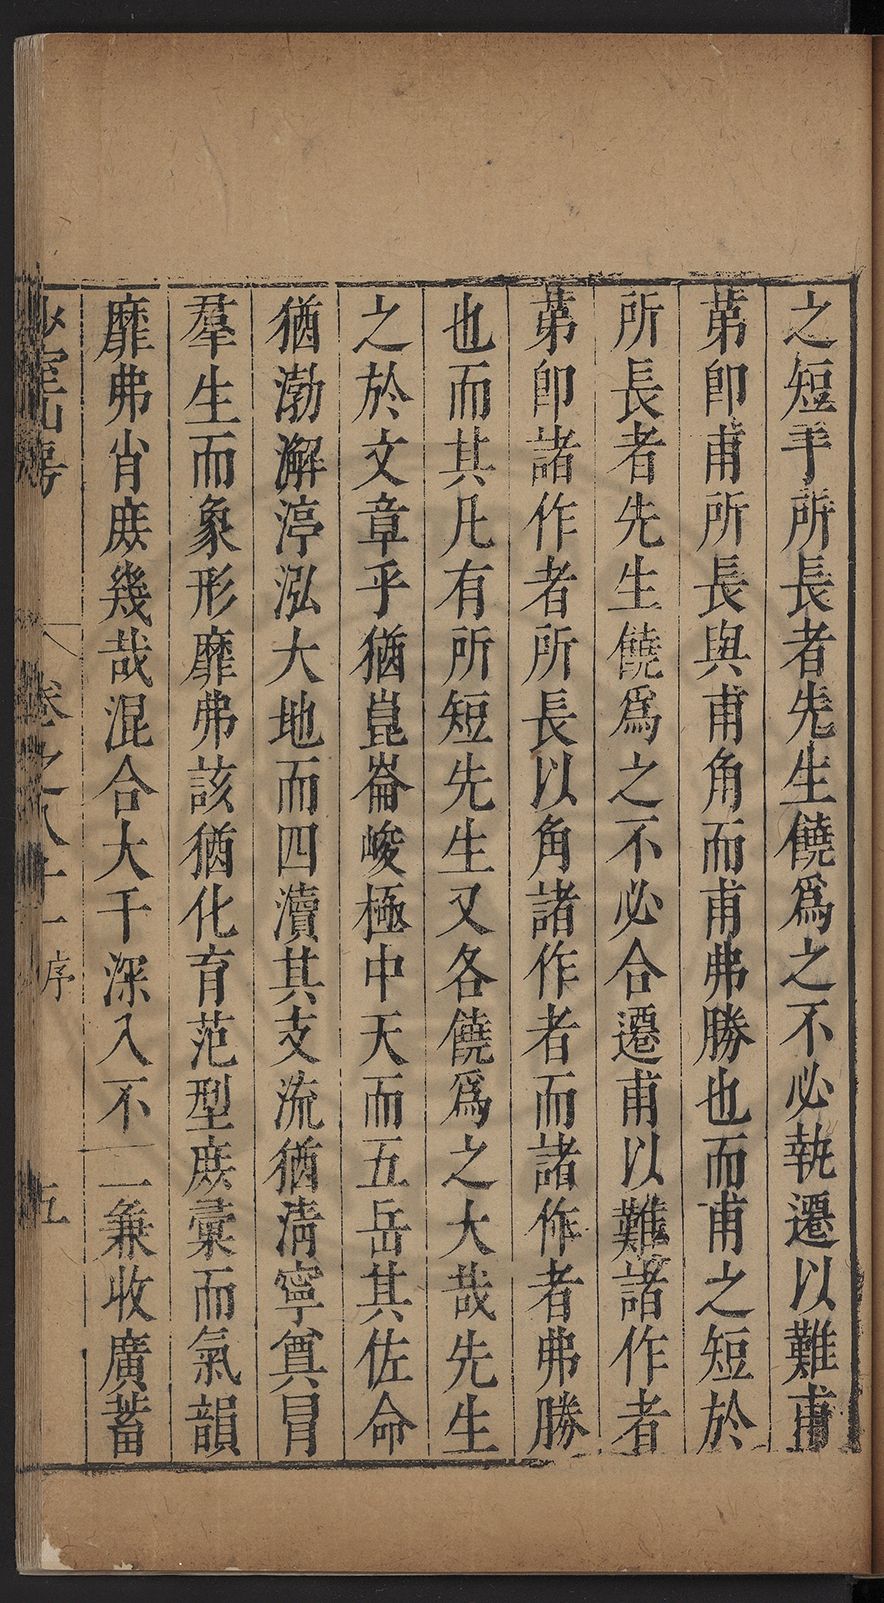 之短乎所長者先生饒爲之不必執遷以難甫
第卽甫所長與甫角而甫弗勝也而甫之短於
所長者先生饒爲之不必合遷甫以難諸作者
第卽諸作者所長以角諸作者而諸作者弗勝
也而其凡有所短先生又各饒爲之大哉先生
之於文章乎猶崑崙峻極中天而五岳其佐命
猶渤澥渟泓大地而四瀆其支流猶淸寧奠冒
羣生而象形靡弗該猶化育范型庶彙而氣韻
靡弗肖庶幾哉混合大千深入不二兼收廣蓄
少室山房 卷之八十一 序 五